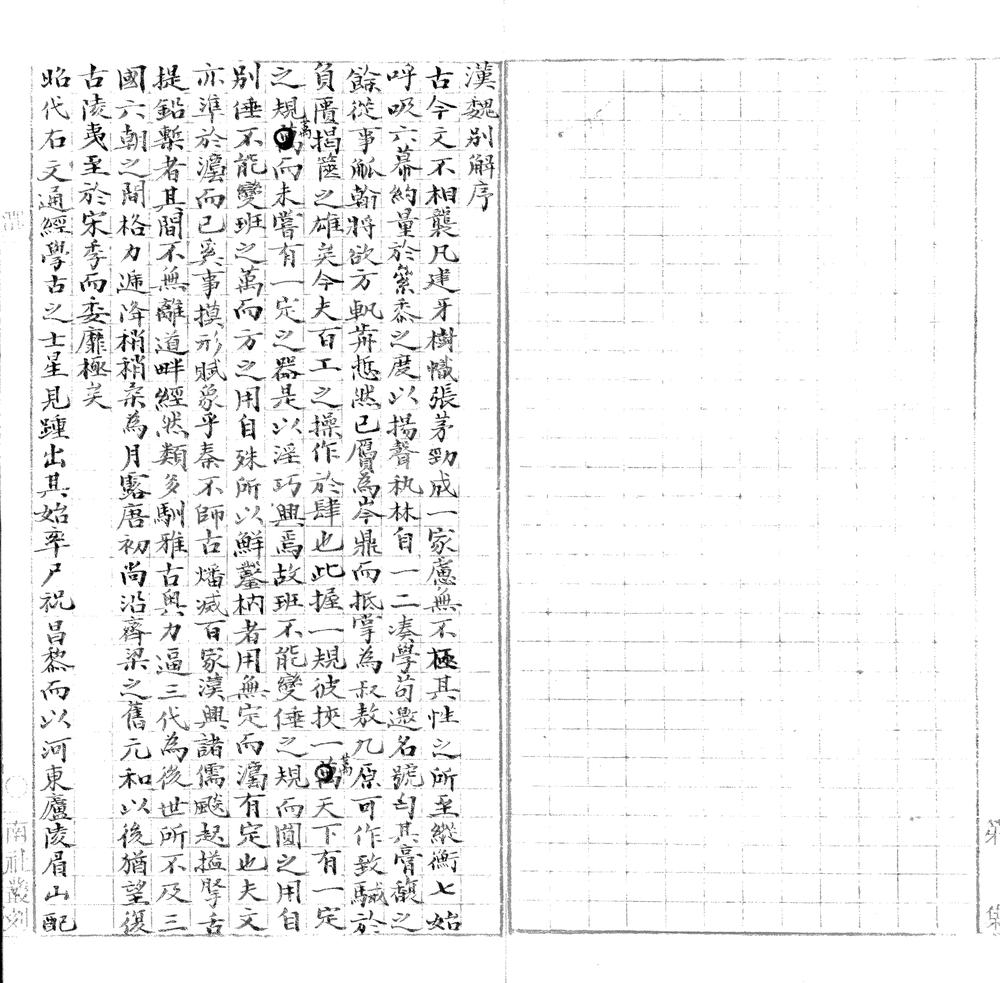 漢魏別解序
古今文不相襲凡建牙樹幟張茅勁成一家慮無不極其性之所至縱衡七始
呼吸六幕約量於絫黍之度以揚聲執林自一二湊學苟邀名號匄其膏馥之
餘從事觚翰將欲方軌莽愆然已贗為岑鼎而抵掌為叔敖九原可作致駴於
負匱揭篋之雄矣今夫百工之操作於肆也此握一規彼挾一萬天下有一定
之規萬而未嘗有一定之器是以淫巧興焉故班不能變倕之規而圓之用自
別倕不能變班之萬而方之用自殊所以鮮鑿枘者用無定而灋有定也夫文
亦準於灋而已奚事摸形賦象乎秦不師古燔滅百家漢興諸儒飈起搤掔舌
提鉛槧者其間不無離道畔經然類多馴雅古奧力逼三代為後世所不及三
國六朝之間格力遞降梢梢柔為月露唐初尚沿齊梁之舊元和以後猶望復
古陵夷至於宋季而委靡極矣
昭代右文通經學古之士星見踵出其始率尸祝昌黎而以河東廬陵眉山配
南社叢刻